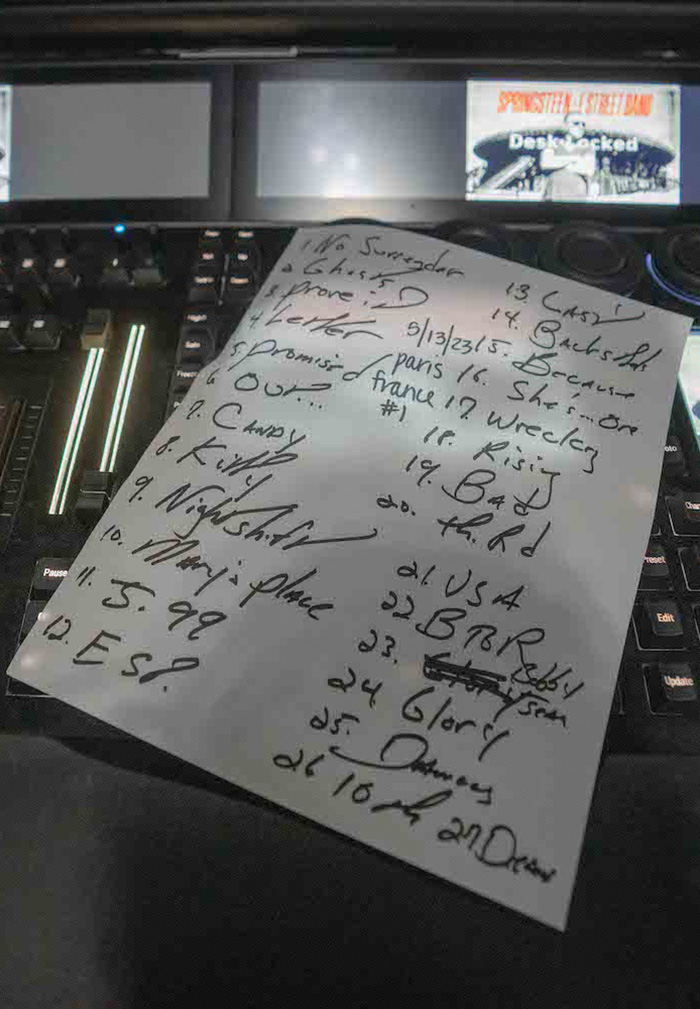 SPRINGSTEEN & E STREET BAND
Desk Locked
1. No Surrender
2. Ghosts
3. Prove iT
4. Letter
5. Promised
6. Our...
7. CANDY
8. Kitty
9. Nightshift
10. Mary's place
11. J. 99
12. E St.
5/13/23
paris
france
#1
13. LAST
14. Backstreets
15. Because
16. She's...one
17. Wrecking
18. Rising
19. BAd
20. th. Rd
21. USA
22. BTBR
23. Bobby Jean
24. Glory
25. Dancing
26 10th
27. Dream
Pause
Edit
Update